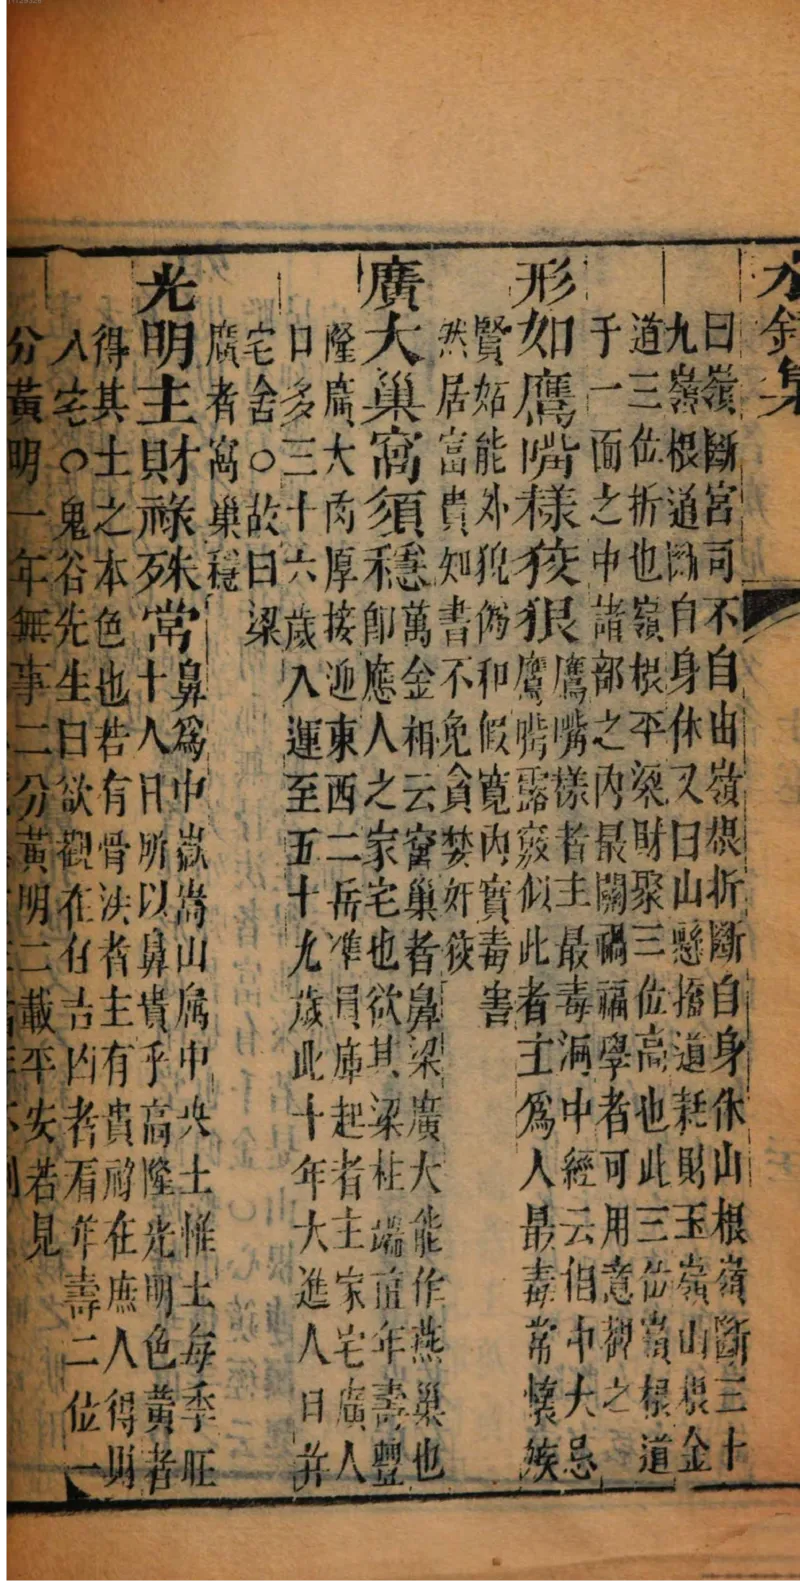 水鏡集
曰嶺斷宮司不自由嶺根折斷自身休山根嶺斷三十
九嶺根道斷自身休又曰山懸擔道耗財玉嶺山根金
道三位折也嶺根平梁財聚三位高也此三位實根道
于一面之中諸部之內最關禍福學者可用意觀之
形如鷹嘴樣狡狠鷹嘴樣者主最毒洞中經云相中大忌
鷹嘴露竅似此者主爲人最毒常懷嫉
賢妬能外猊佛和假寬內實毒害
然居富貴如書不免貪婪奸狡
廣大巢窩須穩萬金相云窩巢者鼻梁廣大能作燕巢也
卽應人之家宅也欲其梁柱端直年壽豐
隆廣大肉厚接迎東西二岳準員庫起者主家宅廣人
口多三十六歲入運至五十九歲此十年大進人口并
宅舍〇故曰梁
廣者窩巢穩
光明主財祿殊常鼻爲中嶽嵩山屬中央土惟土每季旺
十八日所以鼻貴乎高隆光明色黃者
得其土之本色也若有骨法者主有貴爵在庶人得財
入宅〇鬼谷先生曰欲觀在右吉凶者看年壽二位一
分黃明一年無事二分黃明二載平安若見